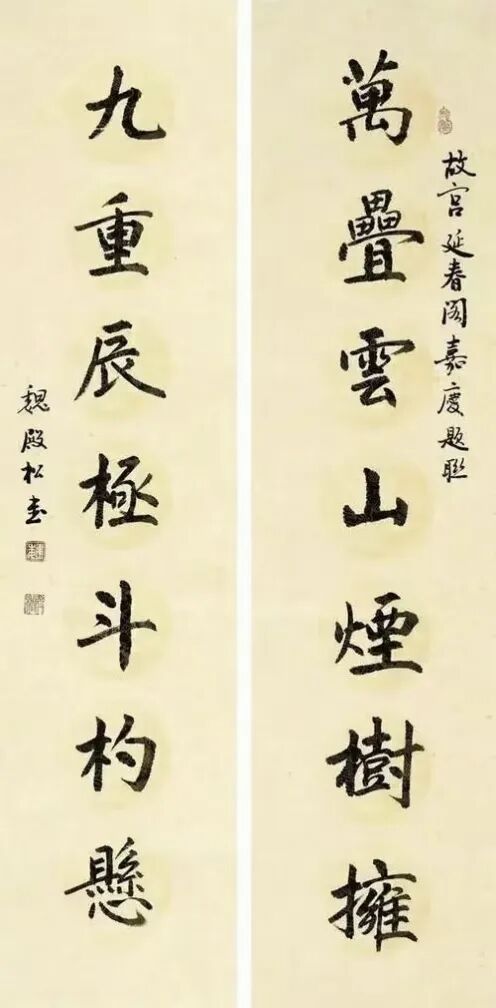 故宫延春阁嘉慶题联
萬疊雲山煙樹擁
九重辰極斗杓懸
魏殿松书